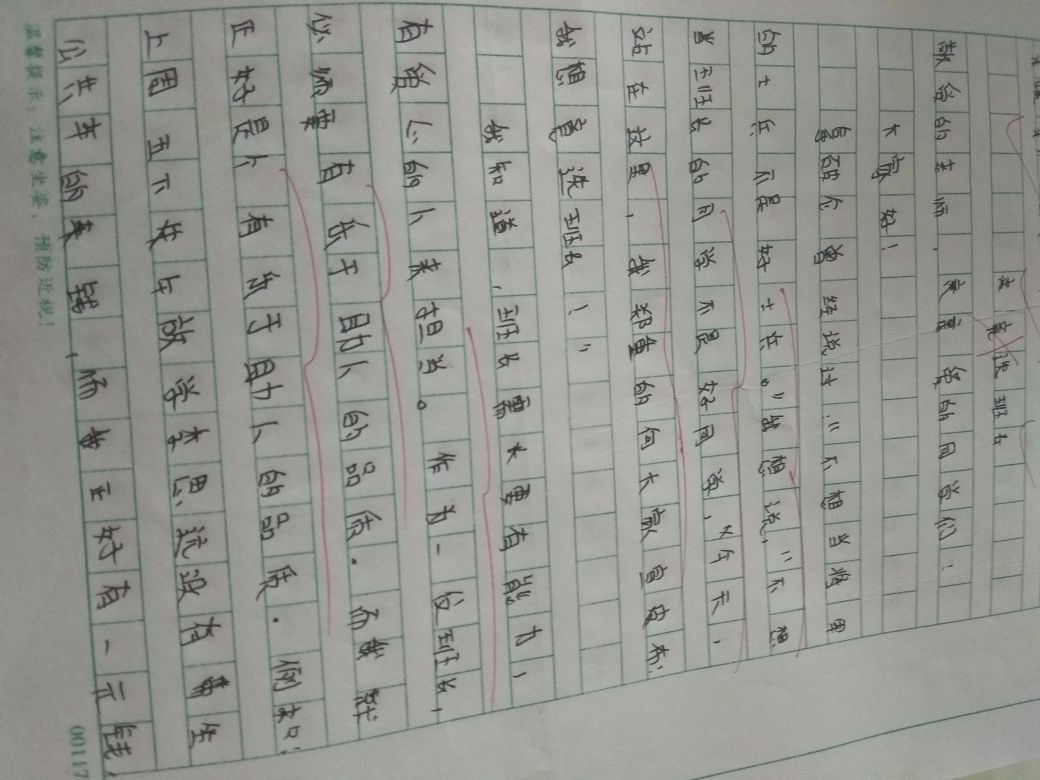 竞选班长
敬爱的老师、亲爱的同学们：
大家好！
拿破仑曾经说过：“不想当将军
的士兵不是好士兵。”我想说，“不想
当班长的同学不是好同学，”今天，
站在这里，我郑重的向大家宣布：
我想竞选班长！”
我知道，班长需要有能力，
有信心的人来担当。作为一位班长，
必须要有乐于助人的品质。而我就
正好是个有乐于助人的品质。例如：
上周五下午放学李思流没有带坐
公共车的来钱，而我正好有一元钱，
温馨提示：注意坐姿，预防近视！
00117